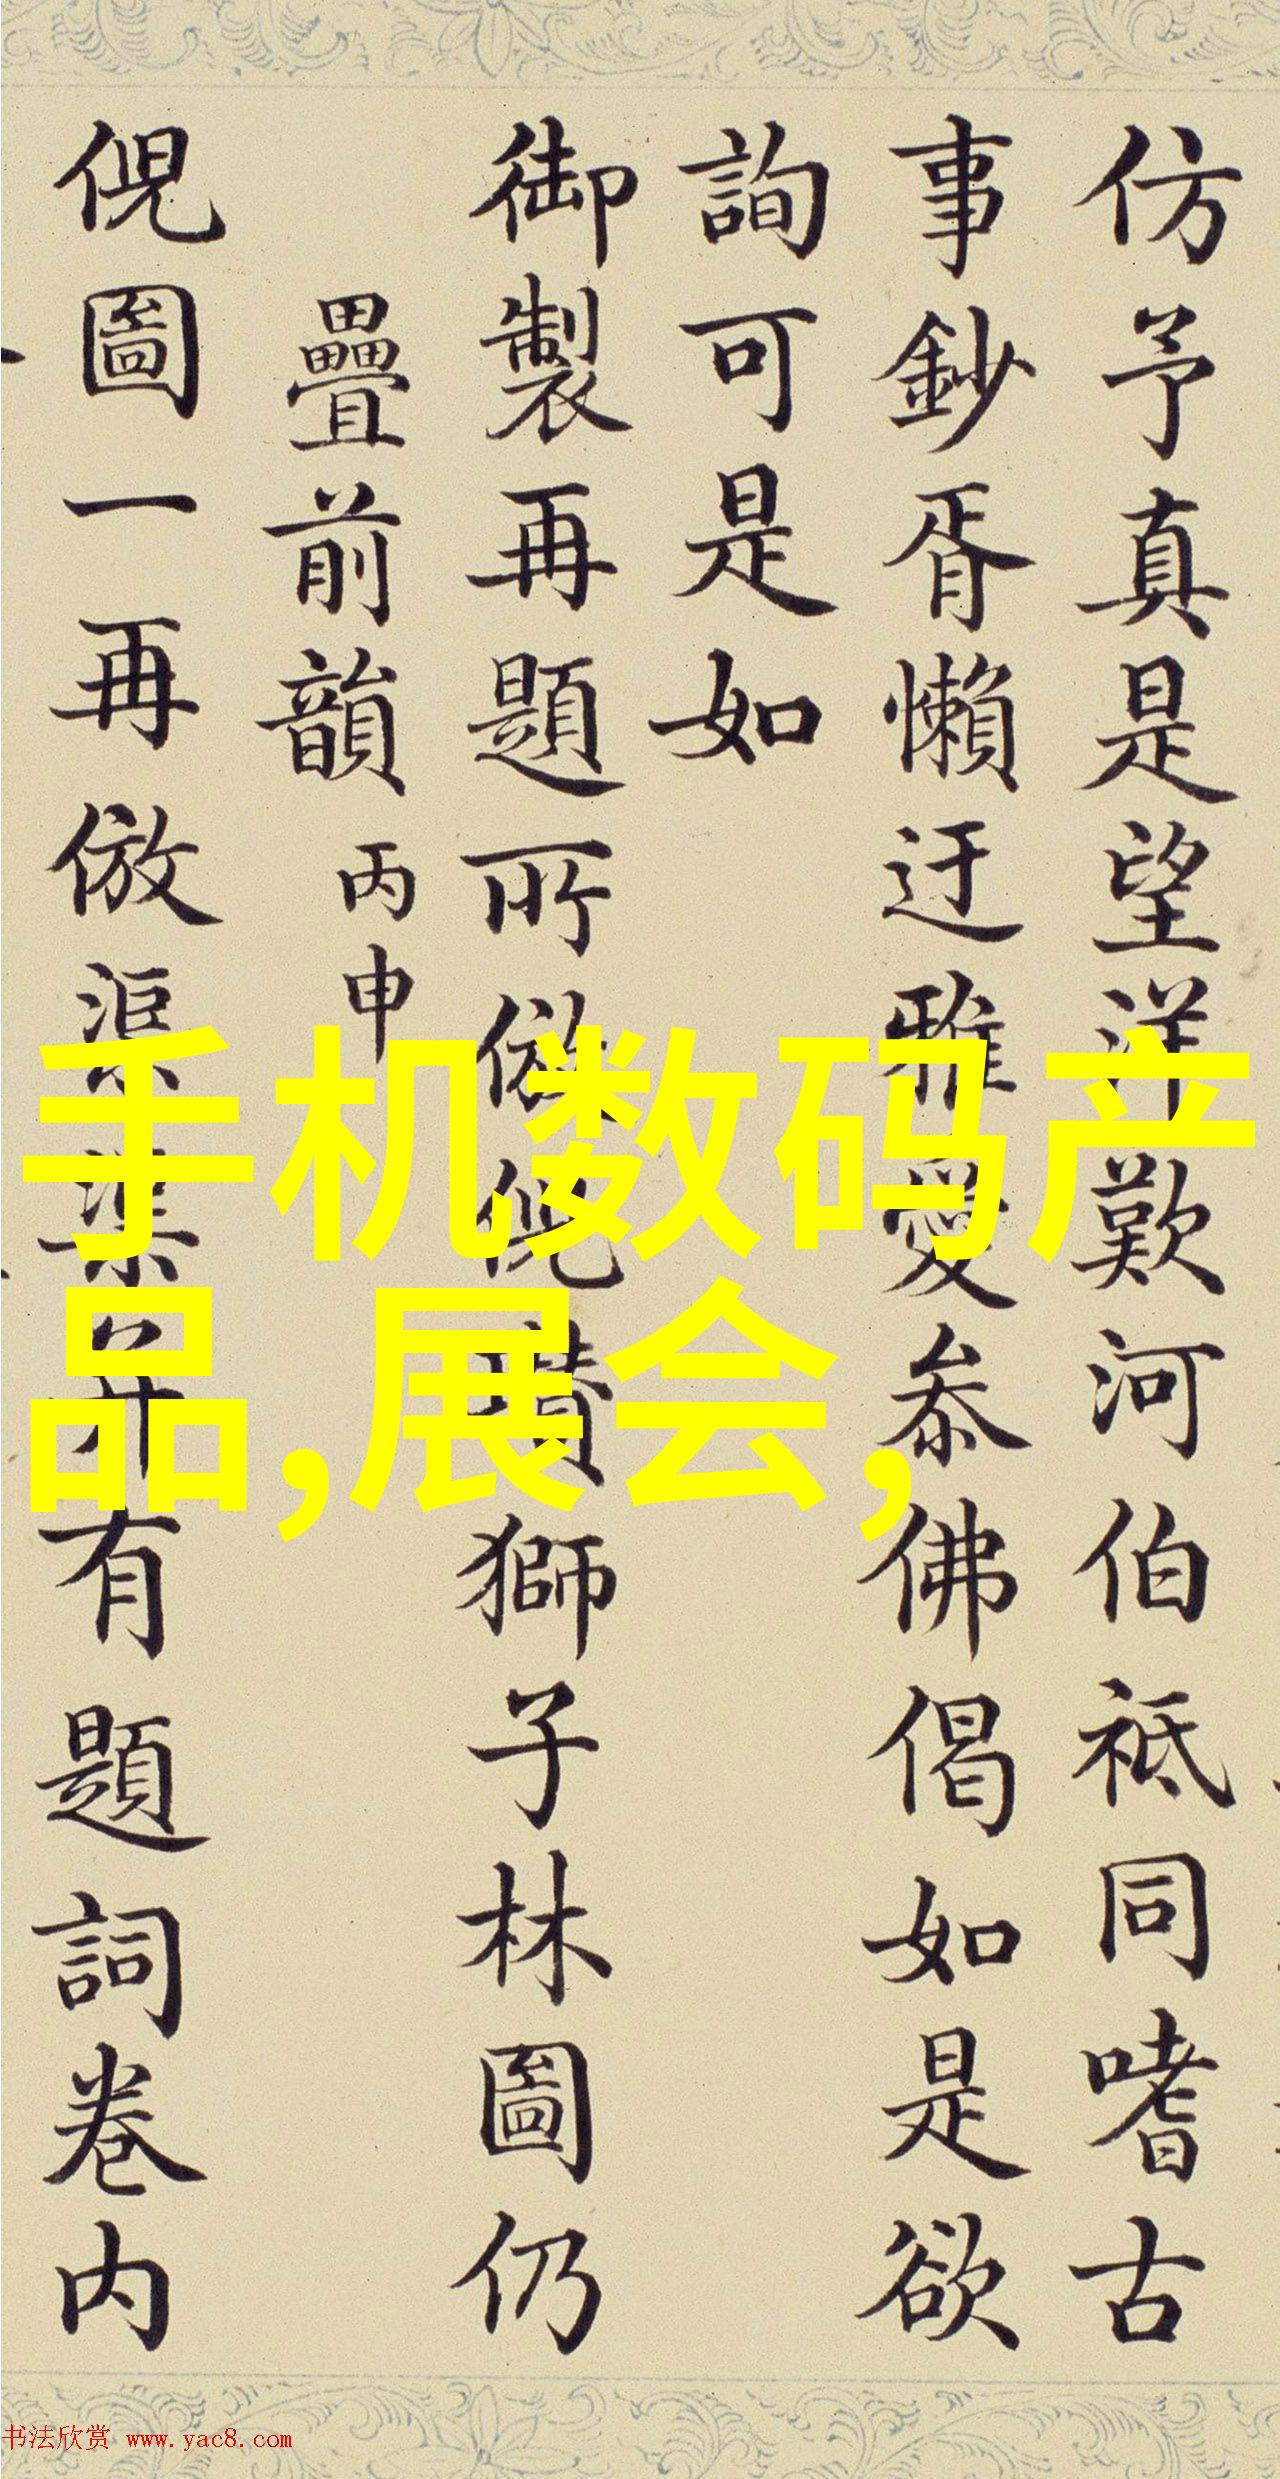 仿予真是望洋歎河伯祗同嗜古
事鈔胥懶迂雅愛叅佛偈如是欲
詢可是如
御製再題所倣倪瓚獅子林圖仍
疊前韻丙申
倪圖一再倣
有題詞卷内
手机数码产
品,展会,
书法欣赏 www.yac8.com